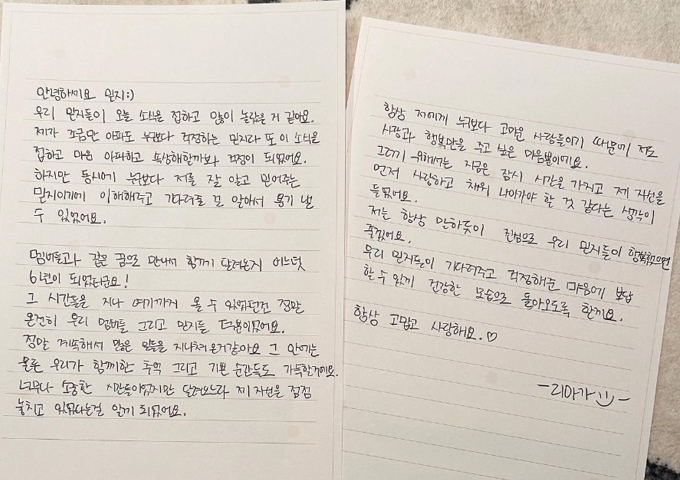 안녕하세요 믿지:)
우리 믿지들이 오늘 소식을 접하고 많이 놀랐을 거 같아요.
제가 조금만 아파도 누구보다 걱정하는 믿지라 또 이 소식을
접하고 마음 아파하고 속상해할까봐 걱정이 되었어요.
하지만 동시에 누구보다 저를 잘 알고 믿어주는
믿지이기에 이해해주고 기다려줄 걸 알아서 용기 낼
수 있었어요.
멤버들과 같은 꿈으로 만나서 함께 달려온지 어느덧
6년이 되었더군요!
그 시간들을 지나 여기까지 올 수 있었던건 정말
온전히 우리 멤버들 그리고 믿지들 덕분이었어요.
정말 계속해서 많은 일들을 지나쳐 온거같아요 그 안에는
물론 우리가 함께한 추억 그리고 기쁜 순간들도 가득할거에요.
너무나 소중한 시간들이었지만 달려오느라 제 자신을 점점
놓치고 있었다는걸 알게 되었어요.
항상 저에게 누구보다 고마운 사람들이기 때문에 저도
사랑과 행복만을 주고 싶은 마음뿐이에요.
그러기 위해서는 지금은 잠시 시간을 가지고 제 자신을
먼저 사랑하고 채워 나아가야 할 것 같다는 생각이
들었어요.
저는 항상 말하듯이 진심으로 우리 믿지들이 행복했으면
좋겠어요.
우리 믿지들이 기다려주고 걱정해준 마음에 보답
할 수 있게 건강한 모습으로 돌아오도록 할게요.
항상 고맙고 사랑해요.♡
-리아가-